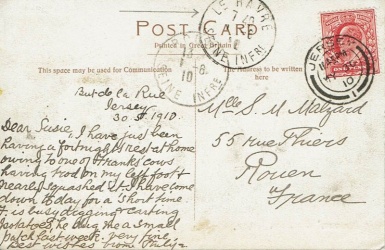 LE HAVRE
POST CARD
Printed in Great Britain
This space may be used for Communication
The Address to be written here
SEINE INFRE
10
JERSEY
10
But de la Rue
Jersey
30 . 1910.
Dear Susie, I have just been
having a fortnight's rest at home
owing to one of Frank's cows
having trod on my left foot &
nearly squashed it. I have come
down to day for a short time
F. is busy digging & carting
potatoes, he dug me a small
patch last week. very fine
best wishes from
Mlle S. M. Malzard
55 rue Thiers
Rouen
France